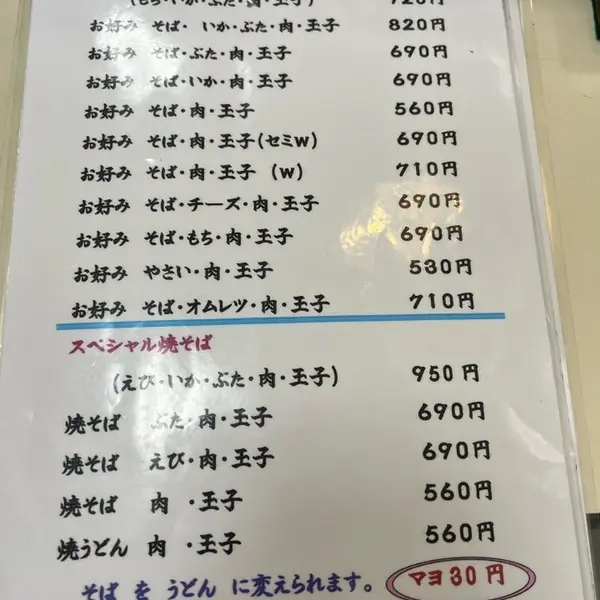 (もち・いか・ぶた・肉・玉子) 720円
お好み そば・いか・ぶた・肉・玉子 820円
お好み そば・ぶた・肉・玉子 690円
お好み そば・いか・肉・玉子 690円
お好み そば・肉・玉子 560円
お好み そば・肉・玉子(セミw) 690円
お好み そば・肉・玉子 (w) 710円
お好み そば・チーズ・肉・玉子 690円
お好み そば・もち・肉・玉子 690円
お好み やさい・肉・玉子 530円
お好み そば・オムレツ・肉・玉子 710円
スペシャル焼そば
(えび・いか・ぶた・肉・玉子) 950円
焼そば ぶた・肉・玉子 690円
焼そば えび・肉・玉子 690円
焼そば 肉 ・玉子 560円
焼うどん 肉 ・玉子 560円
そば を うどん に変えられます。 マヨ30円